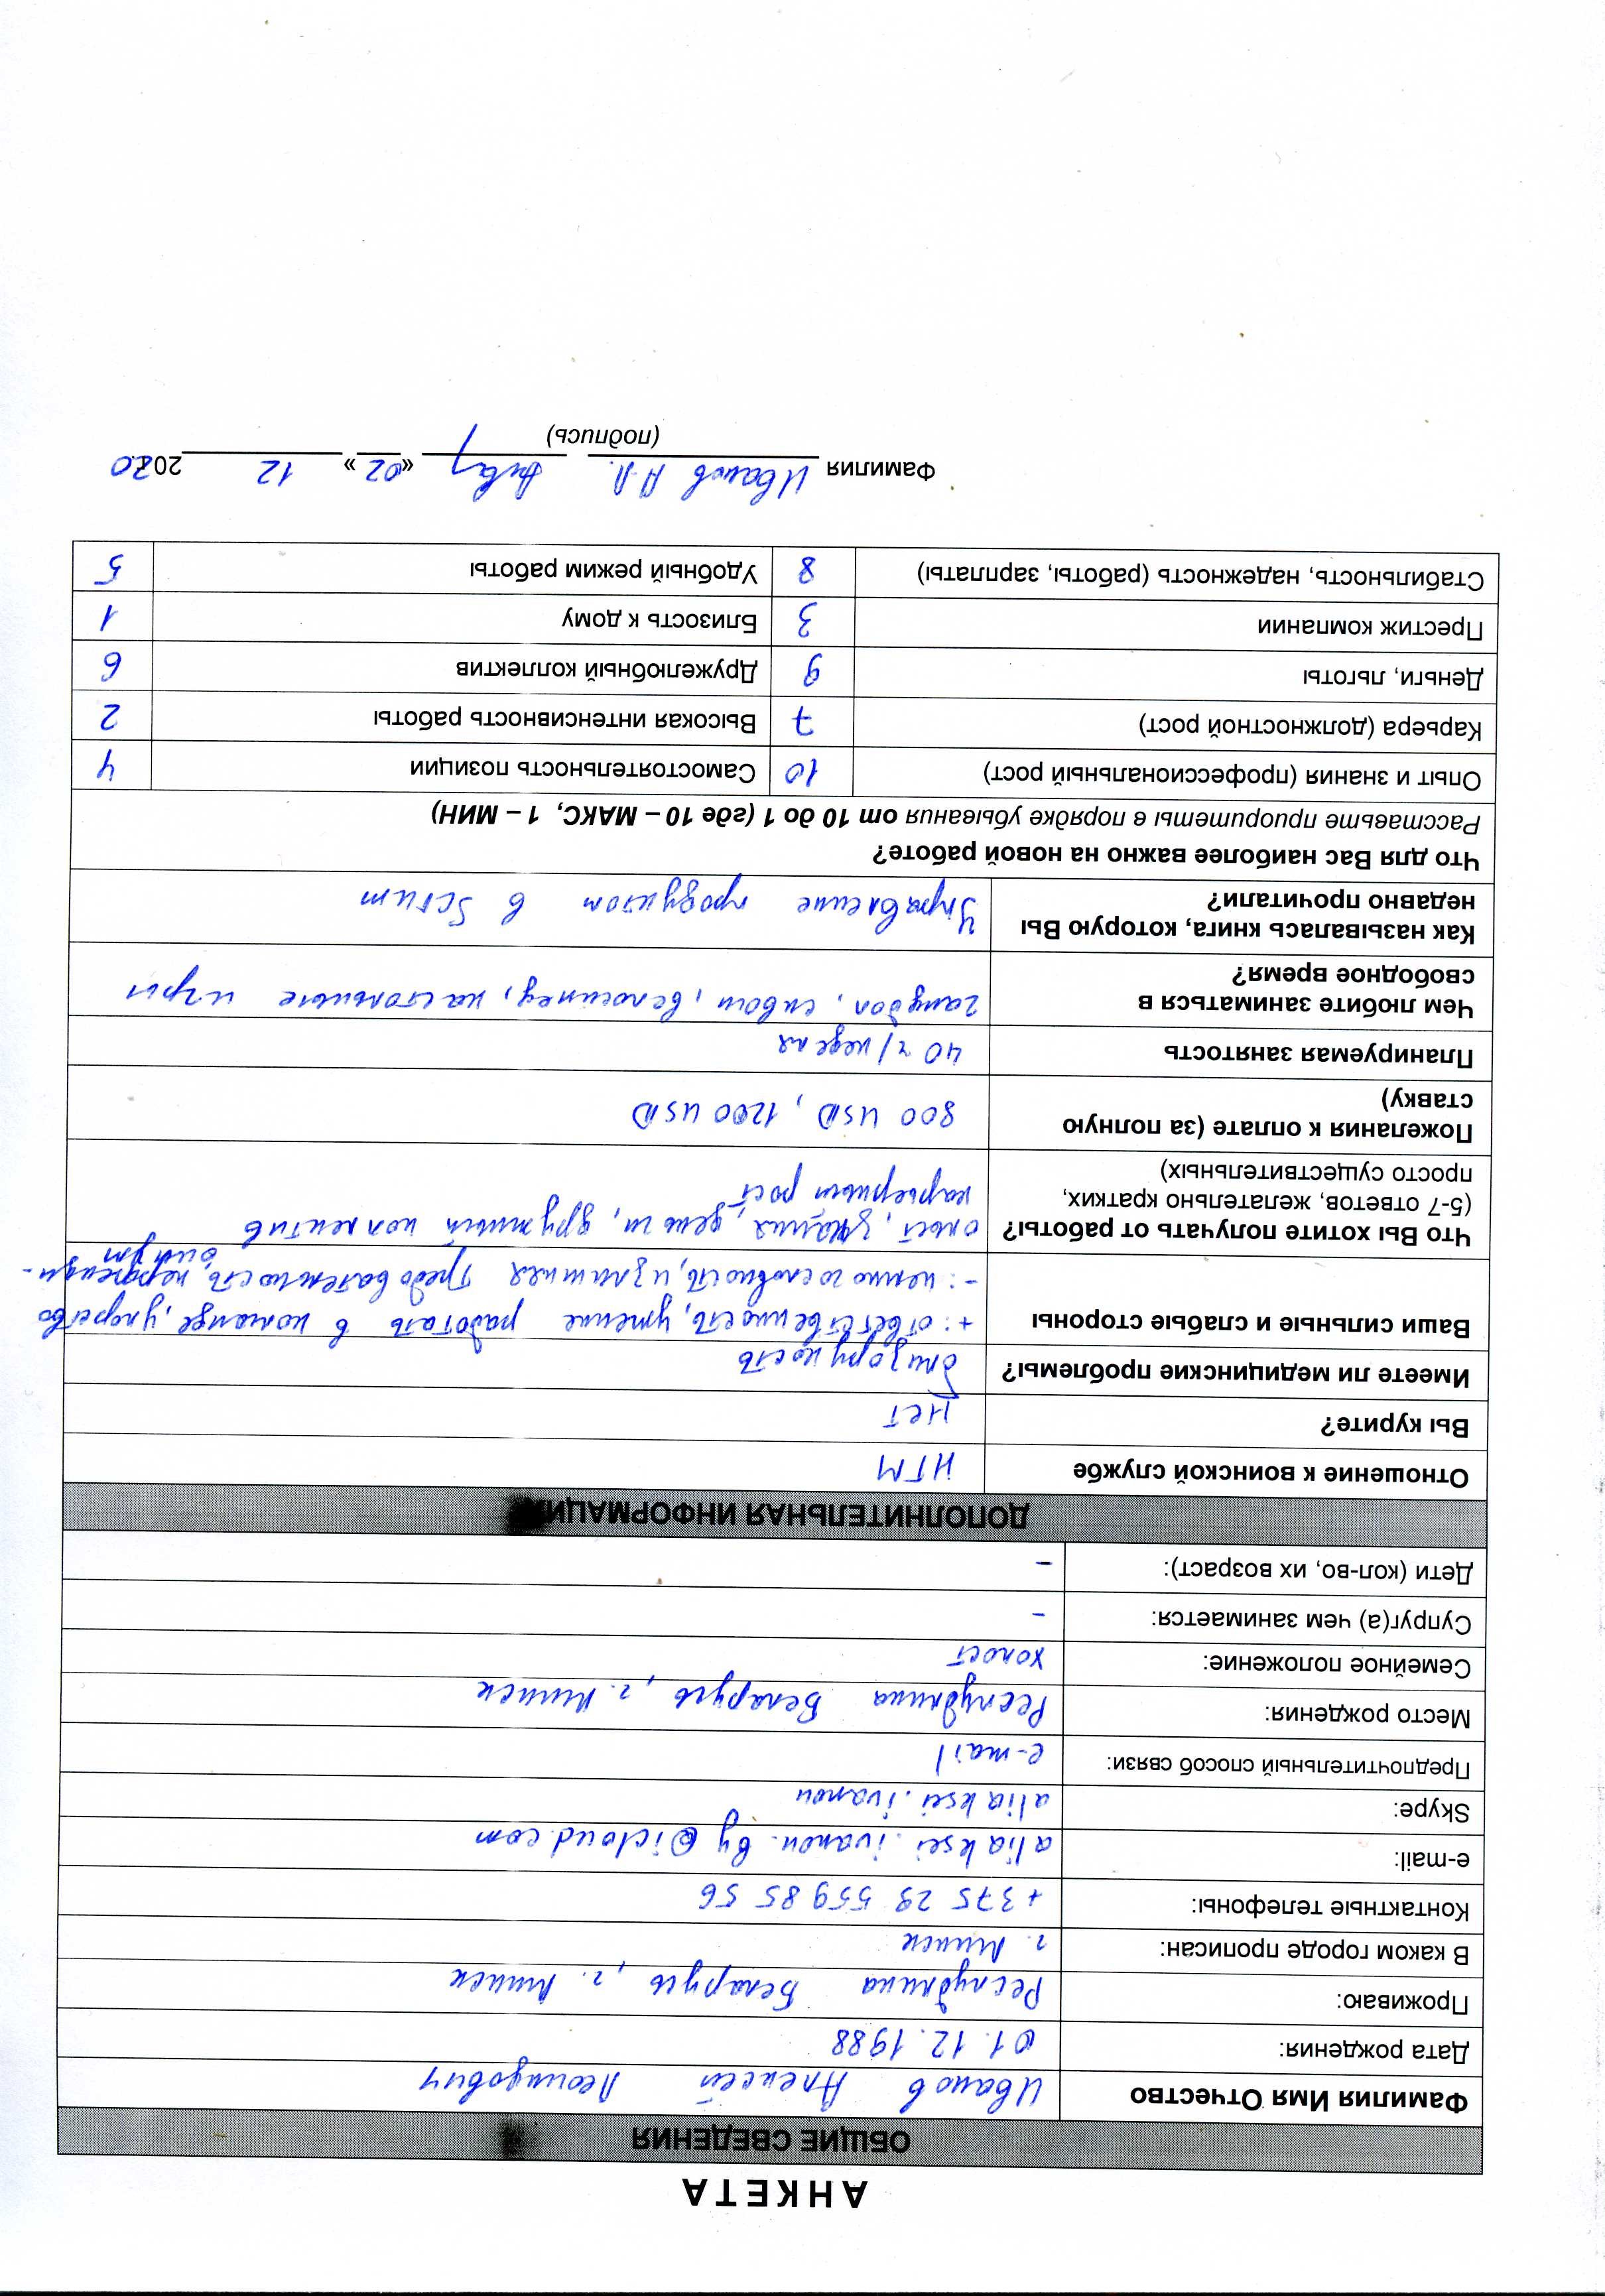 АНКЕТА
ОБЩИЕ СВЕДЕНИЯ
Фамилия Имя Отчество Иванов Алексей Леонидович
Дата рождения: 01.12.1988
Проживаю: Республика Беларусь, г. Минск
В каком городе прописан: г. Минск
Контактные телефоны: +375 29 559 85 56
e-mail: aliaksei.ivanou.by@icloud.com
Skype: aliaksei.ivanou
Предпочтительный способ связи: e-mail
Место рождения: Республика Беларусь, г. Минск
Семейное положение: холост
Супруг(а) чем занимается: –
Дети (кол-во, их возраст): –
ДОПОЛНИТЕЛЬНАЯ ИНФОРМАЦИЯ
Отношение к воинской службе НГМ
Вы курите? нет
Имеете ли медицинские проблемы? близорукость
Ваши сильные и слабые стороны +: ответственность, умение работать в команде, упорство
–: немногословность, излишняя требовательность, перфекци-
онизм
Что Вы хотите получать от работы? опыт, знания, деньги, дружный коллектив
(5-7 ответов, желательно кратких, карьерный рост
просто существительных)
Пожелания к оплате (за полную
ставку) 800 USD, 1200 USD
Планируемая занятость 40 ч/неделя
Чем любите заниматься в гандбол, сквош, велосипед, настольные игры
свободное время?
Как называлась книга, которую Вы
недавно прочитали? Управление продуктом в Scrum
Что для Вас наиболее важно на новой работе?
Расставьте приоритеты в порядке убывания от 10 до 1 (где 10 – МАКС, 1 – МИН)
Опыт и знания (профессиональный рост) 10 Самостоятельность позиции 4
Карьера (должностной рост) 7 Высокая интенсивность работы 2
Деньги, льготы 9 Дружелюбный коллектив 6
Престиж компании 3 Близость к дому 1
Стабильность, надежность (работы, зарплаты) 8 Удобный режим работы 5
Фамилия Иванов А.Л. «02» 12 2020
(подпись)